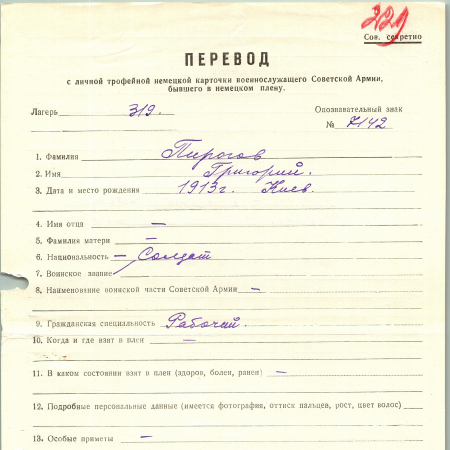 229
Сов. секретно
ПЕРЕВОД
с личной трофейной немецкой карточки военнослужащего Советской Армии,
бывшего в немецком плену.
Лагерь 319. Опознавательный знак
№ 7142
1. Фамилия Пирогов
2. Имя Григорий.
3. Дата и место рождения 1913г. Киев.
4. Имя отца —
5. Фамилия матери —
6. Национальность — Солдат
7. Воинское звание
8. Наименование воинской части Советской Армии —
9. Гражданская специальность Рабочий.
10. Когда и где взят в плен —
11. В каком состоянии взят в плен (здоров, болен, ранен) —
12. Подробные персональные данные (имеется фотография, оттиск пальцев, рост, цвет волос)
13. Особые приметы —